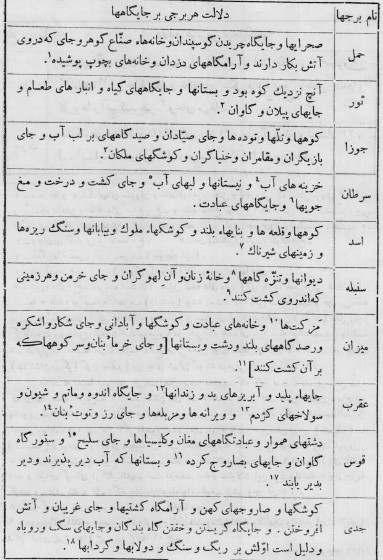 نام برجها
دلالت هر برجی بر جایگاهها
حمل
صحرایها و جایگاه چریدن گوسپندان و خانهاء صنّاع گوهر و جای که دروی
آتش بکار دارند و آرامگاههای دزدان و خانهای بچوب پوشیده۱.
ثور
آنچ نزدیك کوه بود و بستانها و جایگاههای گیاه و انبارهای طعام و
جایهای پیلان و گاوان۲.
جوزا
کوهها و تلّها و تودهها و جای صیّادان و صیدگاههای بر لب آب و جای
بازیگران و مقامران و خنیاگران و کوشکهای ملکان۳.
سرطان
خزینه‌های آب۴ و نیستانها و لبهای آب۵ و جای کشت و درخت و مغ
جویها۶ و جایگاههای عبادت.
اسد
کوهها و قلعه‌ها و بناهاء بلند و کوشکهاء ملوك و بیابانها و سنگ ریزه‌ها
و زمینهای شیرناك۷
سنبله
دیوانها و تنزّه گاهها۸ و خانهٔ زنان و آن لهوگران و جای خرمن و هر زمینی
که اندروی کشت کنند۹.
میزان
مزکت‌ها۱۰ و خانه‌های عبادت و کوشکها و آبادانی و جای شکار و اشکره
و رصدگاههای بلند و دشت و بستانها [و جای خرما بنان و سر کوهها که
بر آن کشت کنند]۱۱.
عقرب
جایهاء پلید و آبریزهای بد و زندانها۱۲ و جایگاه اندوه و ماتم و شیون و
سولاخهای کژدم۱۳ و ویرانه‌ها و مزبله‌ها و جای رز و توت بنان۱۴.
قوس
دشتهای هموار و عبادتگاههای مغان و کلیسیاها و جای سلیح۱۵ و ستورگاه
گاوان و جایهای بصاروج کرده۱۶ و بستانها که آب دیر پذیرند و دیر
بدیر یابند۱۷.
جدی
کوشکها و صاروجهای کهن و آرامگاه کشتیها و جای غریبان و آتش
افروختن. و جایگاه گریستن و خفتن گاه بندگان و جایهای سگ و روباه
و دلیل است اوّلش بر ریگ و سنگ و دولابها و گردابها۱۸.